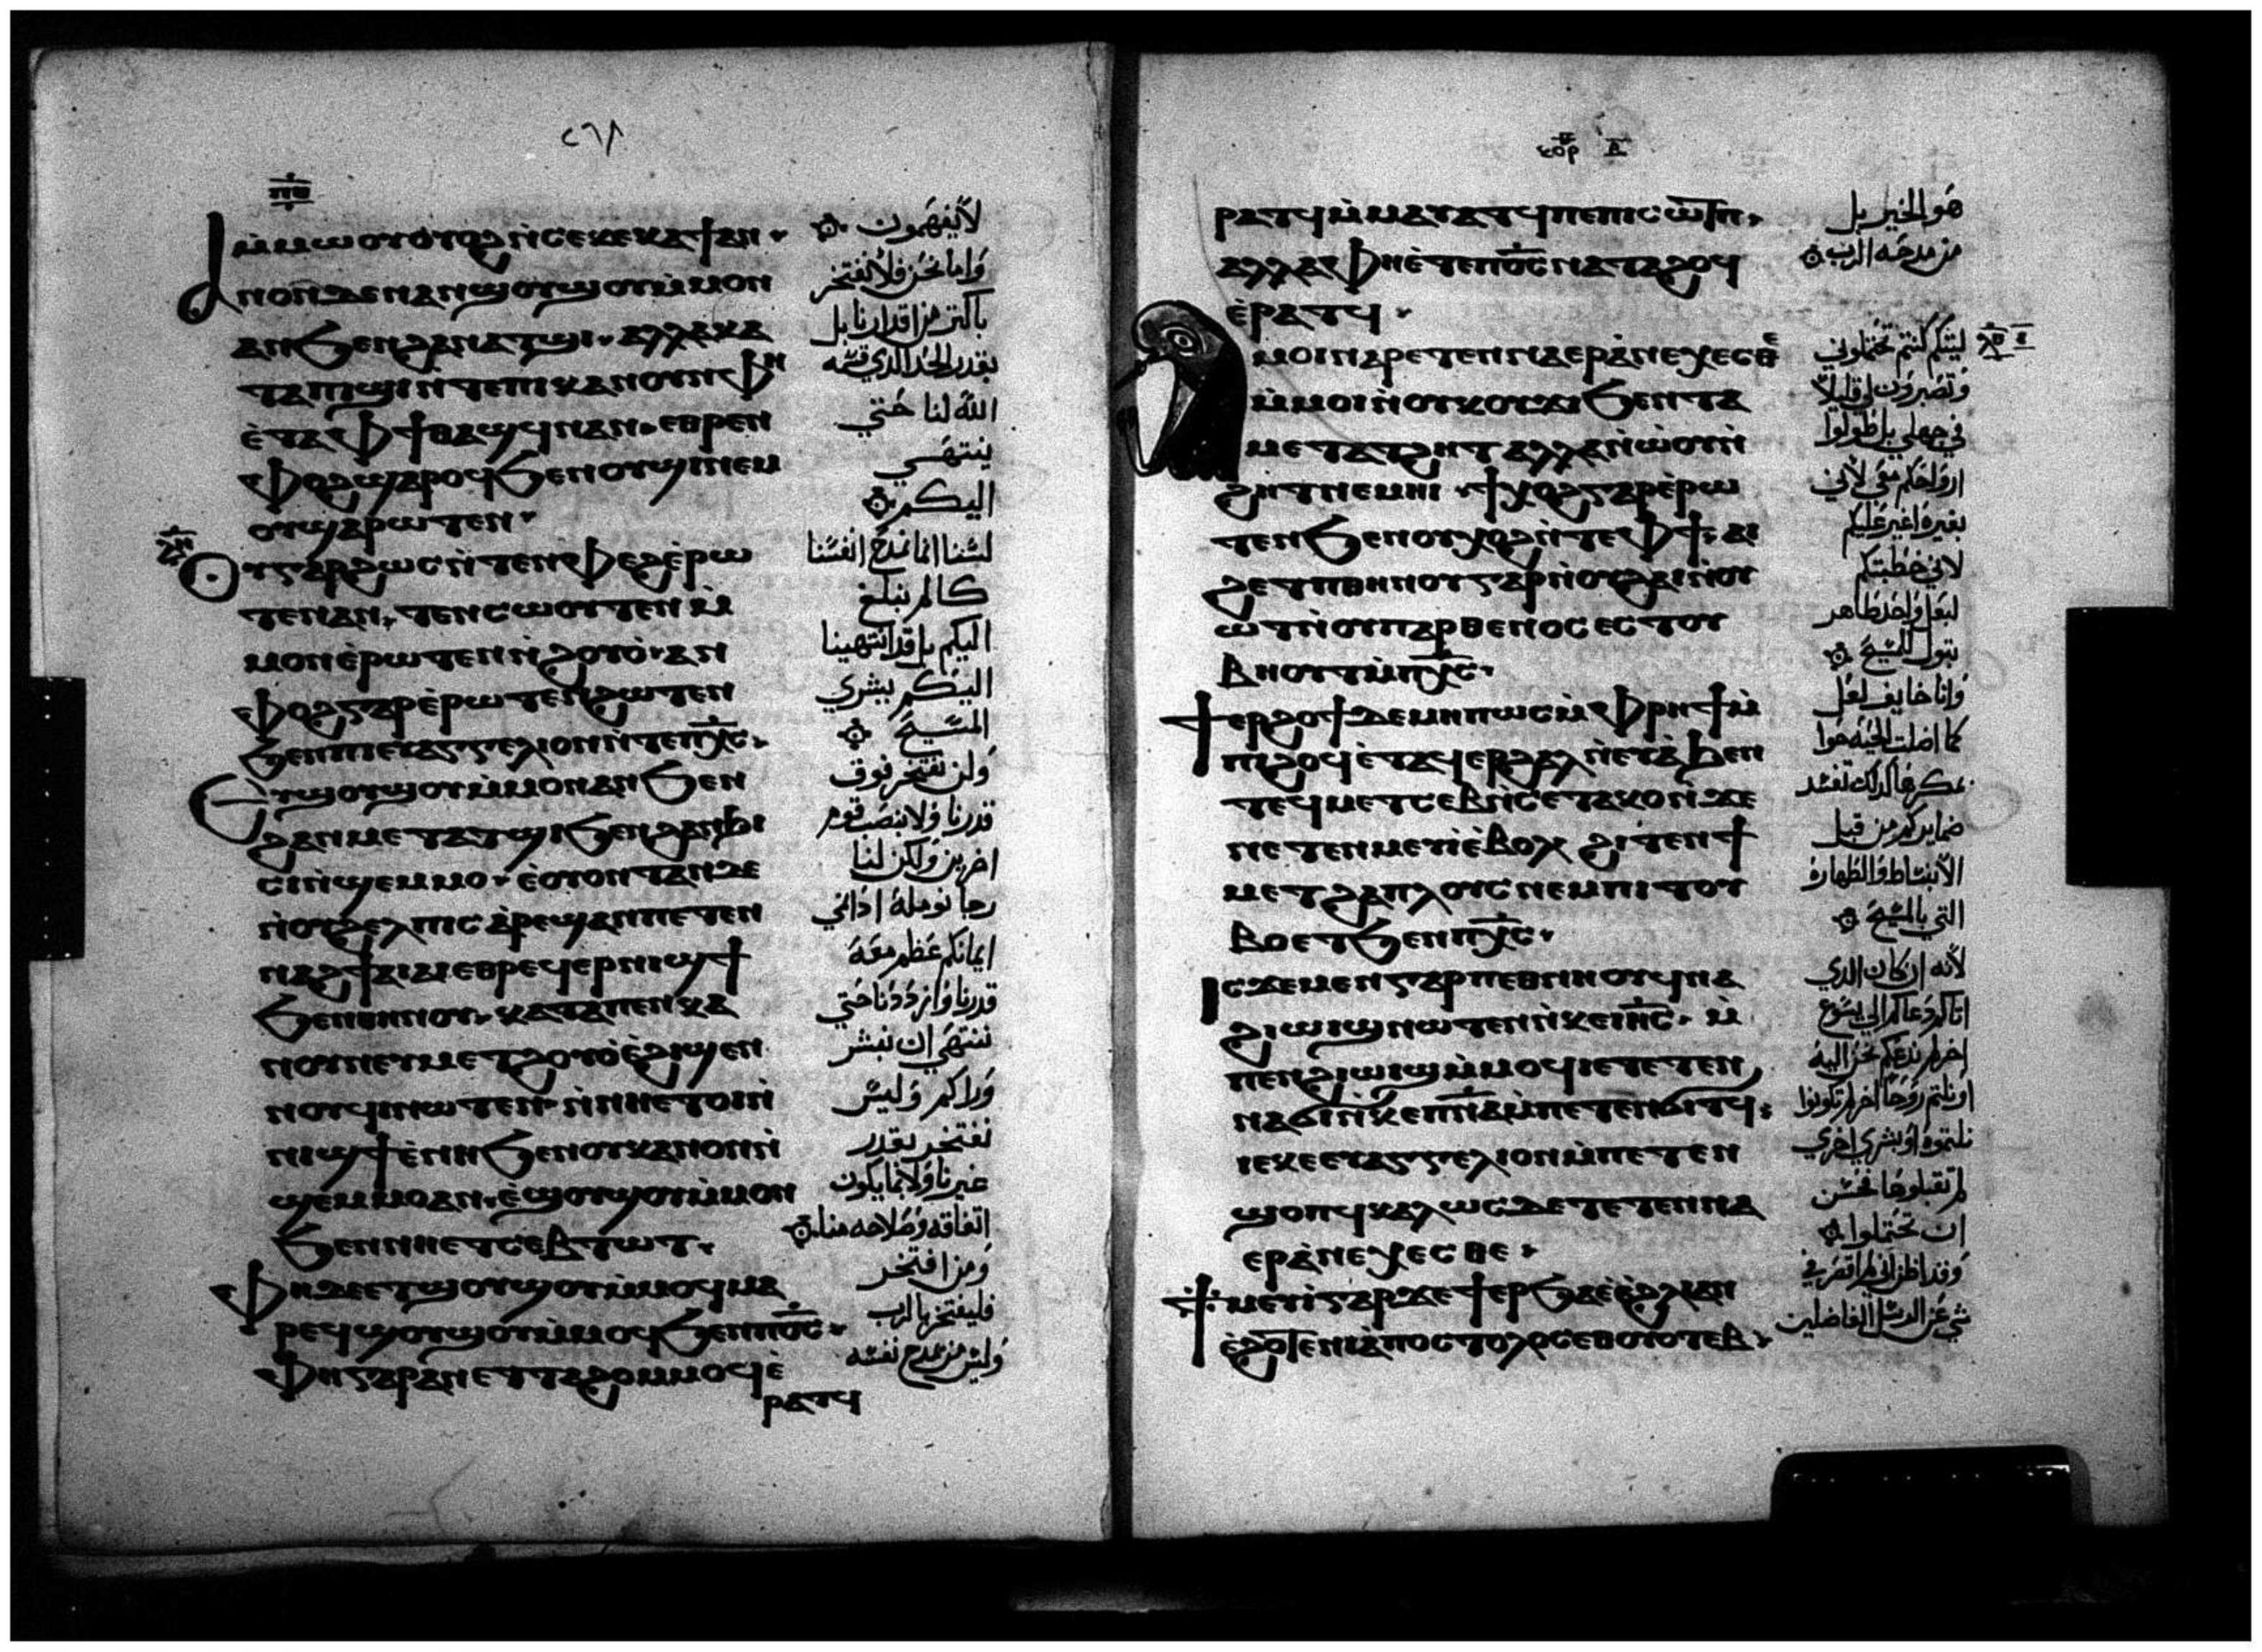 ⲡⲑ
ⲙ̀ⲙⲱⲟⲩⲟⲩⲟϩⲛ̀ⲥⲉⲕⲉⲕⲁϯⲁⲛ
ⲁⲛⲟⲛⲇⲉⲛⲁⲛϣⲟⲩϣⲟⲩⲙ̀ⲙⲟⲛ
ⲁⲛϧⲉⲛϩⲁⲛⲁⲧϣⲓ ⲁⲗⲗⲁⲕⲁ
ⲧⲁⲡⲓϣⲓⲛ̀ⲧⲉⲡⲓⲕⲁⲛⲟⲩⲛⲫⲏ
ⲉ̀ⲧⲁⲫϯⲑⲁϣϥⲛⲁⲛ ⲉⲑⲣⲉⲛ
ⲫⲟϩϣⲁⲣⲟϥϧⲉⲛⲟⲩϣⲓⲛⲉⲙ
ⲟⲩϣⲁⲣⲱⲧⲉⲛ
ⲟⲩⲅⲁⲣϩⲱⲥⲛ̀ⲧⲉⲛⲫⲉϩⲉ̀ⲣⲱ
ⲧⲉⲛⲁⲛ ⲧⲉⲛⲥⲱⲟⲩⲧⲉⲛⲙ̀
ⲙⲟⲛⲉ̀ⲣⲱⲧⲉⲛⲛ̀ϩⲟⲩⲟ̀ ⲁⲛ
ⲫⲟϩⲅⲁⲣⲉ̀ⲣⲱⲧⲉⲛϩⲱⲧⲉⲛ
ϧⲉⲛⲡⲓⲉⲩⲁⲅⲅⲉⲗⲓⲟⲛⲛ̀ⲧⲉⲡⲭ̅ⲥ̅
ⲉⲩϣⲟⲩϣⲟⲩⲙ̀ⲙⲟⲛⲁⲛϧⲉⲛ
ϩⲁⲛⲙⲉⲧⲁⲧϣⲓϧⲉⲛϩⲁⲛϧⲓ
ⲥⲓⲛ̀ϣⲉⲙⲙⲟ ⲉ̀ⲟⲩⲟⲛⲧⲁⲛⲇⲉ
ⲛ̀ⲟⲩϩⲉⲗⲡⲓⲥⲁ̀ⲣⲉϣⲁⲛⲡⲉⲧⲉⲛ
ⲛⲁϩϯⲁⲓⲁⲓⲉⲑⲣⲉϥⲉⲣⲛⲓϣϯ
ϧⲉⲛⲑⲏⲛⲟⲩ ⲕⲁⲧⲁⲡⲉⲛⲕⲁ
ⲛⲟⲩⲛⲉⲩⲙⲉⲧϩⲟⲩⲟ̀ⲉ̀ϩⲓϣⲉⲛ
ⲛⲟⲩϥⲓⲛⲱⲧⲉⲛ ⲛ̀ⲛⲏⲉⲧⲟⲓⲛ̀
ⲛⲓϣϯⲉ̀ⲛⲏϧⲉⲛⲟⲩⲕⲁⲛⲟⲛⲛ̀
ϣⲉⲙⲙⲟⲁⲛ ⲉ̀ϣⲟⲩϣⲟⲩⲙ̀ⲙⲟⲛ
ϧⲉⲛⲛⲏⲉⲧⲥⲉⲃⲧⲱⲧ
ⲫⲏⲇⲉⲉⲧϣⲟⲩϣⲟⲩⲙ̀ⲙⲟϥⲙⲁ
ⲣⲉϥϣⲟⲩϣⲟⲩⲙ̀ⲙⲟϥϧⲉⲛⲡⲟ̅ⲥ̅
ⲫⲏⲅⲁⲣⲁⲛⲉⲧⲧⲁϩⲟⲙⲙⲟϥⲉ̀
ⲣⲁⲧϥ
لا يفهمون
واما نحن فلا نفتخر
باكثر من اقدارنا بل
بقدر الحد الدي قسمه
الله لنا حتي
ينتهي
اليكم
لسنا انما نمدح انفسنا
كالم نبلغ
اليكم بل قد انتهينا
اليكم ببشري
المسيح
ولن نفتخر فوق
قدرنا ولا بنصب قوم
اخرين ولكن لنا
رجا نومله ادا نمي
ايمانكم عظم معه
قدرنا وازددنا حتي
ننتهي ان نبشر
وراكم وليس
نفتخر بقدر
غيرنا ولا بما يكون
اتفاقه وصلاحه منا
ومن افتخر
فليفتخر بالرب
وليس من يمدح نفسه
ⲕⲟⲣ ⲃ̅
ⲣⲁⲧϥⲙ̀ⲙⲁⲩⲁⲧϥⲡⲉⲡⲓⲥⲱⲧⲡ
ⲁⲗⲗⲁⲫⲏⲉ̀ⲧⲉⲡⲟ̅ⲥ̅ⲛⲁⲧⲁϩⲟϥ
ⲉ̀ⲣⲁⲧϥ
ⲁⲙⲟⲓⲛⲁⲣⲉⲧⲉⲛⲛⲁⲉⲣⲁ̀ⲛⲉⲭⲉⲥⲑⲉ
ⲙ̀ⲙⲟⲓⲛ̀ⲟⲩⲕⲟⲩϫⲓϧⲉⲛⲧⲁ
ⲙⲉⲧⲁⲧϩⲏⲧⲁⲗⲗⲁⲛ̀ⲱ̀ⲟⲩⲛ̀
ϩⲏⲧⲛⲉⲙⲏⲓ ϯⲭⲟϩⲅⲁⲣⲉ̀ⲣⲱ
ⲧⲉⲛϧⲉⲛⲟⲩⲭⲟϩⲛ̀ⲧⲉⲫϯ ⲁⲓ
ϩⲉⲧⲡⲑⲏⲛⲟⲩⲅⲁⲣⲛ̀ⲟⲩϩⲁⲓⲛ̀ⲟⲩ
ⲱⲧⲛ̀ⲟⲩⲡⲁⲣⲑⲉⲛⲟⲥⲉⲥⲧⲟⲩ
ⲃⲏⲟⲩⲧⲙ̀ⲡⲭ̅ⲥ̅
ϯⲉⲣϩⲟϯⲇⲉⲙⲏⲡⲱⲥⲙ̀ⲫⲣⲏϯⲙ̀
ⲡⲓϩⲟϥⲉ̀ⲧⲁϥⲉⲣϩⲁⲗⲛ̀ⲉⲩⲁ̀ϧⲉⲛ
ⲧⲉϥⲙⲉⲧⲥⲉⲃⲛ̀ⲥⲉⲧⲁⲕⲟⲛ̀ϫⲉ
ⲛⲉⲧⲉⲛⲙⲉⲩⲓⲉ̀ⲃⲟⲗ ϩⲓⲧⲉⲛϯ
ⲙⲉⲧϩⲁⲡⲗⲟⲩⲥⲛⲉⲙⲡⲓⲧⲟⲩ
ⲃⲟⲉⲧϧⲉⲛⲡⲭ̅ⲥ̅
ⲓⲥϫⲉⲙⲉⲛⲅⲁⲣⲡⲉⲑⲛⲏⲟⲩϥⲛⲁ
ϩⲓⲱⲓϣⲛⲱⲧⲉⲛⲛ̀ⲕⲉⲓⲏ̅ⲥ̅ ⲙ̀
ⲡⲉⲛϩⲓⲱⲓϣⲙ̀ⲙⲟϥⲓⲉⲧⲉⲧⲉⲛ
ⲛⲁϭⲓⲛ̀ⲕⲉⲡⲛ̅ⲁ̅ⲙ̀ⲡⲉⲧⲉⲛϭⲓⲧϥ
ⲓⲉⲕⲉⲉⲩⲁⲅⲅⲉⲗⲓⲟⲛⲙ̀ⲡⲉⲧⲉⲛ
ϣⲟⲡϥⲕⲁⲗⲱⲥⲇⲉⲧⲉⲧⲉⲛⲛⲁ
ⲉⲣⲁ̀ⲛⲉⲭⲉⲥⲑⲉ
ϯⲙⲉⲩⲓⲅⲁⲣϫⲉϯⲉⲣϧⲁⲉ̀ⲉ̀ϩⲗⲓⲁⲛ
ⲉ̀ϩⲟⲧⲉⲛⲓⲁ̀ⲡⲟⲥⲧⲟⲗⲟⲥⲉⲑⲟⲩⲟⲧⲉⲃ
هو الخير بل
من مدحه الرب
ليتكم كنتم تحتملوني
وتصبرون لي قليلا
في جهلي بل طولوا
ارواحكم معي لاني
بغيره اغير عليكم
لاني خطبتكم
لبعل واحد طاهر
بتول للمسيح
وانا خايف لعل
كما اضلت الحيه حوا
بمكرها كدلك تفسد
ضمايركم من قبل
الانبساط والطهاره
التي بالمسيح
لانه ان كان الدي
اتاكم دعاكم الي يسوع
اخر لم ندعكم نحن اليه
او نلتم روحا اخر لم تكونوا
نلتموه او بشري اخري
لم تقبلوها فحسن
ان تحتملوا
وقد اظن اني لم اقصر في
شي عن الرسل الفاضلين